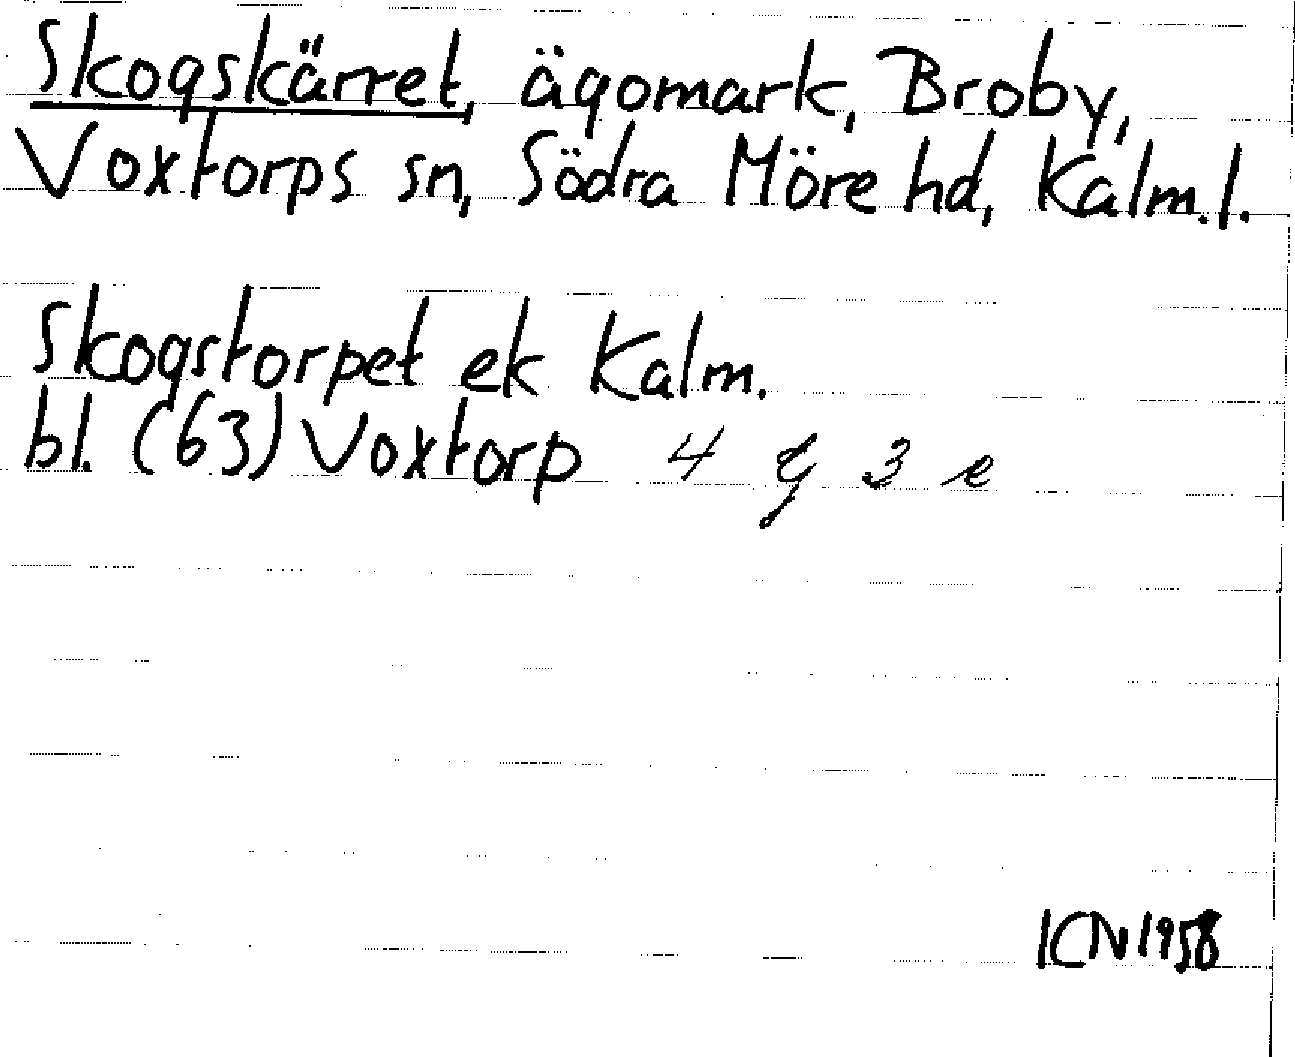 Skogskärret, ägomark, Broby,
Voxtorps sn, Södra Möre hd, Kalm.l.
Skogstorpet ek Kalm.
bl. (63) Voxtorp 4 g 3 e
ICN 1958